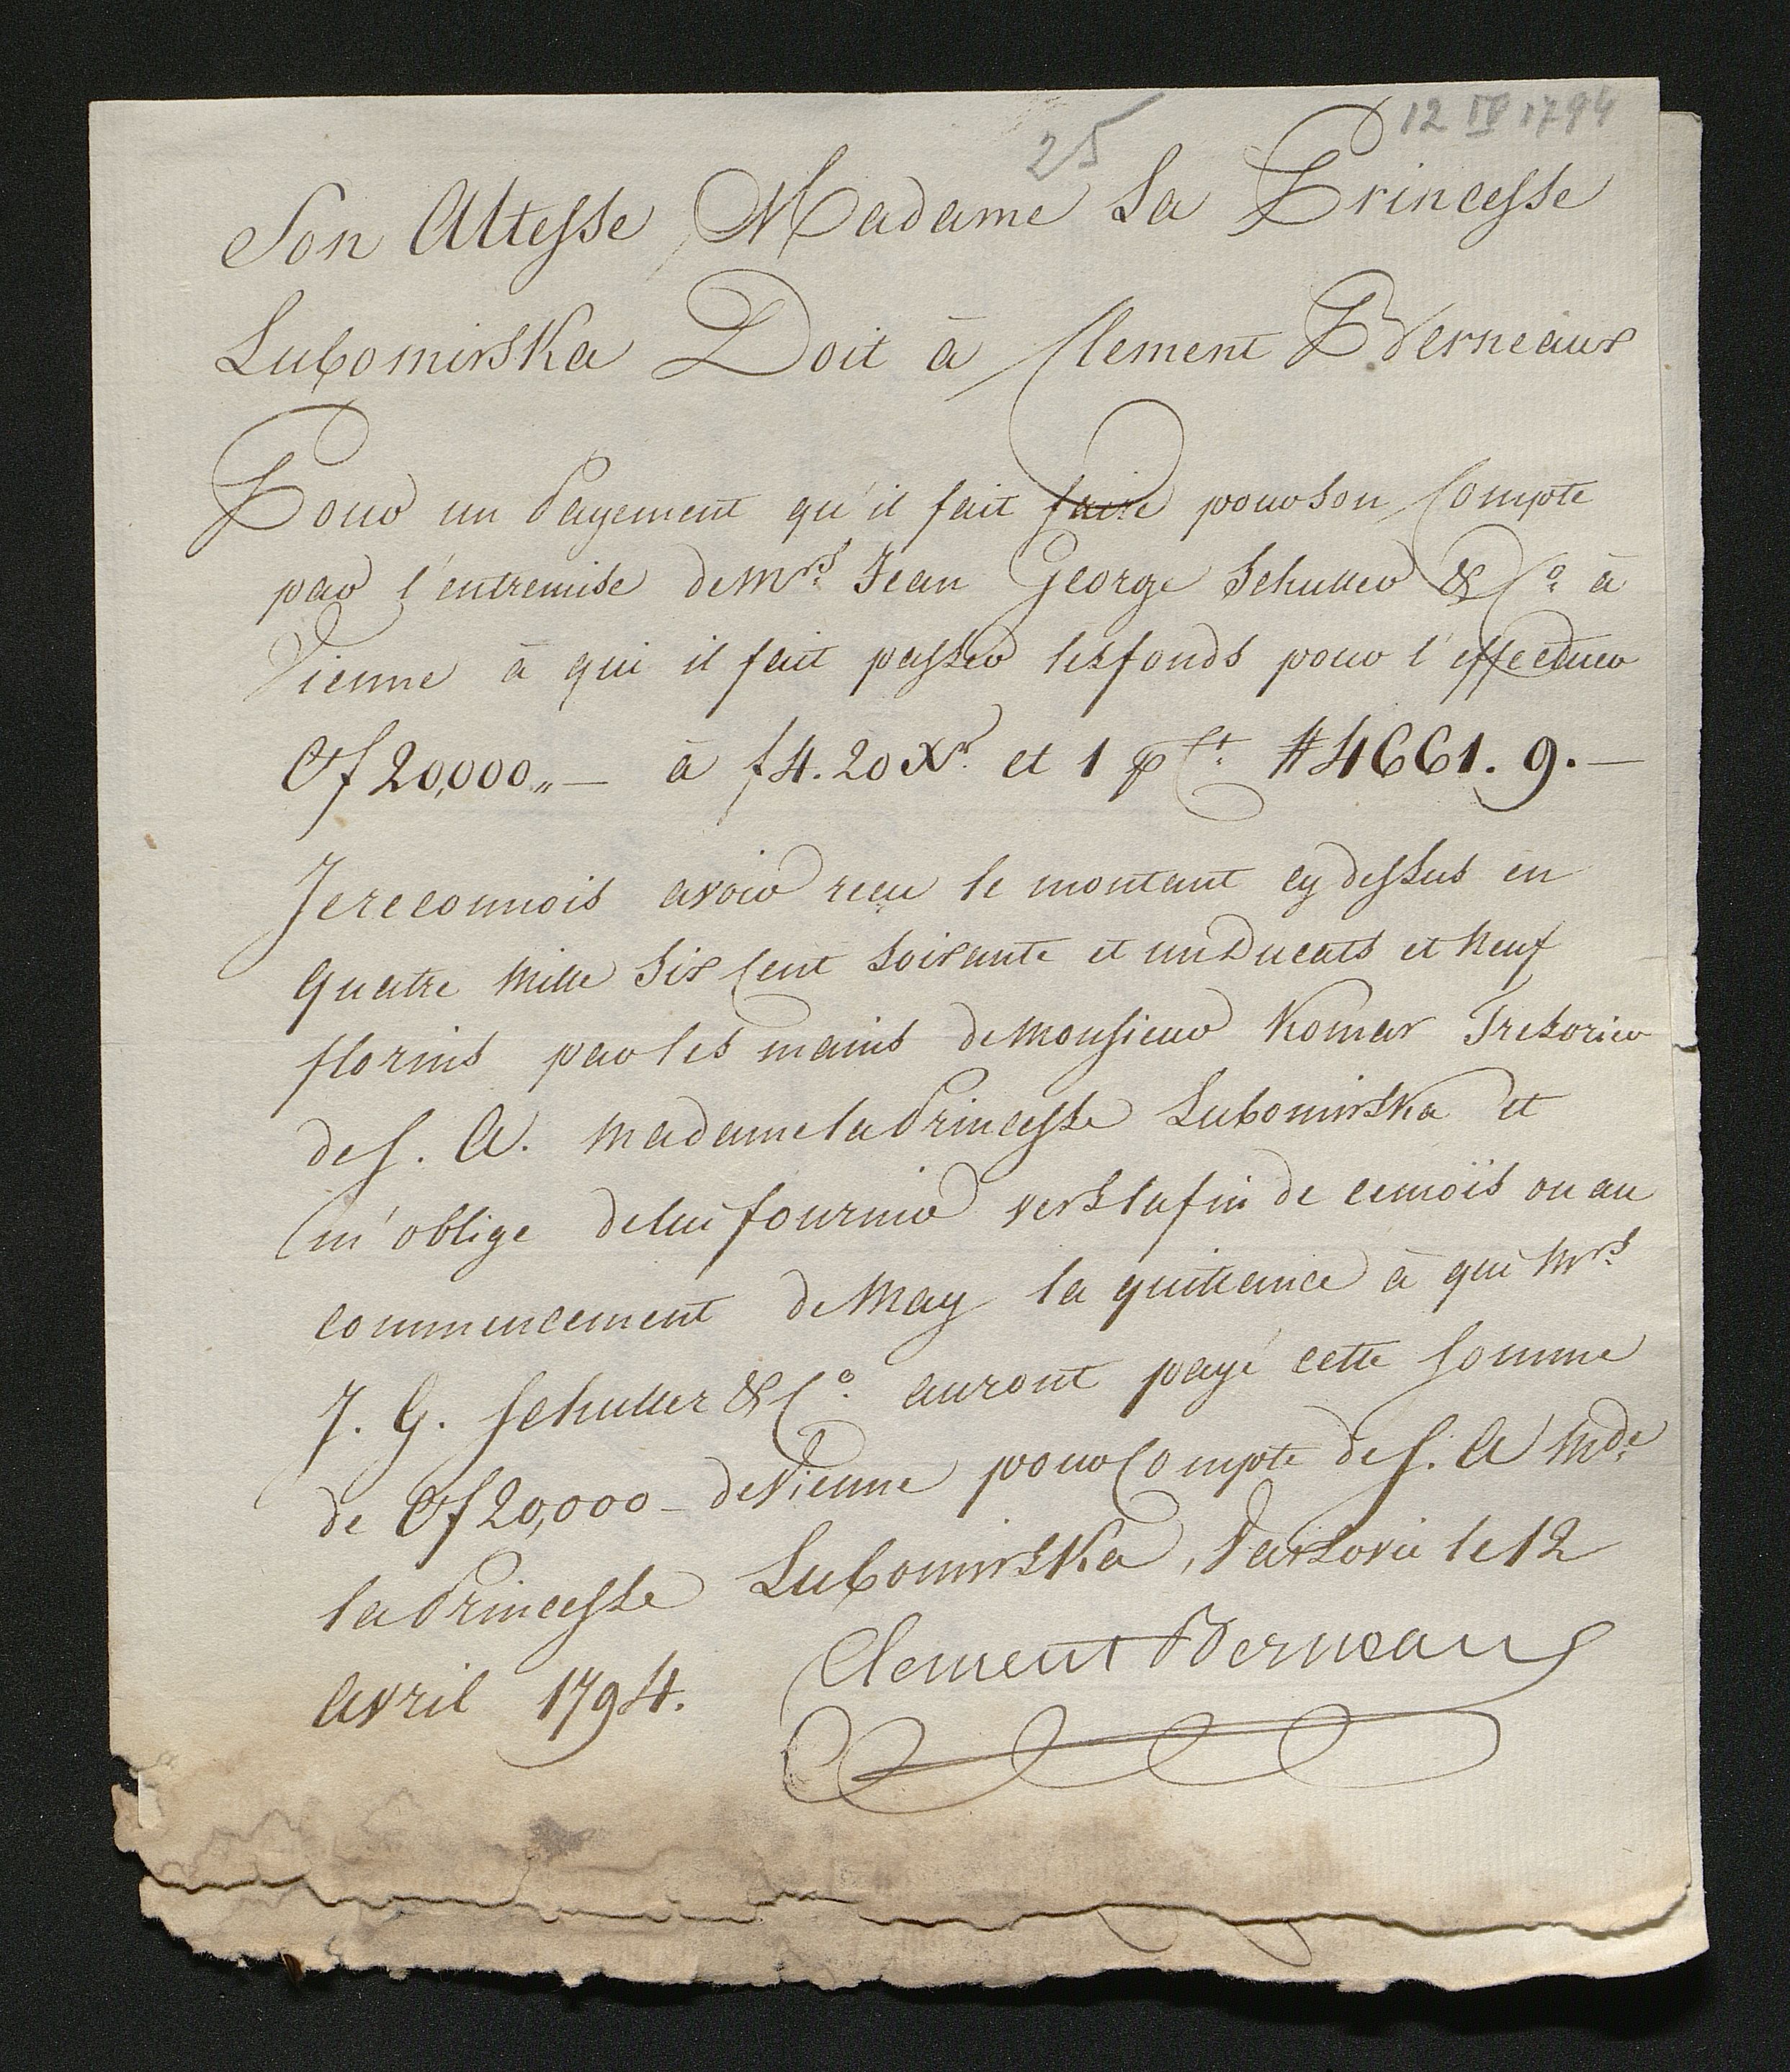 25 12 IV 1794
Son Altesse Madame La Princesse
Lubomirska Doit à Clement Berneaux
Pour un Payement qu'il fait faire pour son Compte
par l'entremise de Mrs. Jean George Schuller & Co. à
Vienne à qui il fait passer les fonds pour l'effectuer
Cf 20,000,,— à f 4. 20 Xr. et 1 p Ct. # 4661. 9.—
Je reconnois avoir reçu le montant cy dessus en
quatre mille six Cent soixante et un Ducats et neuf
florins par les mains de Monsieur Komar Tresorier
de S. A. Madame la Princesse Lubomirska et
m'oblige de lui fournir vers la fin de ce moïs ou au
commencement de May la quittance à qui Mrs.
J. G. Schuller & Co. auront payé cette somme
de Cf 20,000 – de Vienne pour Compte de S. A Mde.
la Princesse Lubomirska, Varsovie le 12
Avril 1794. Clement Berneaux